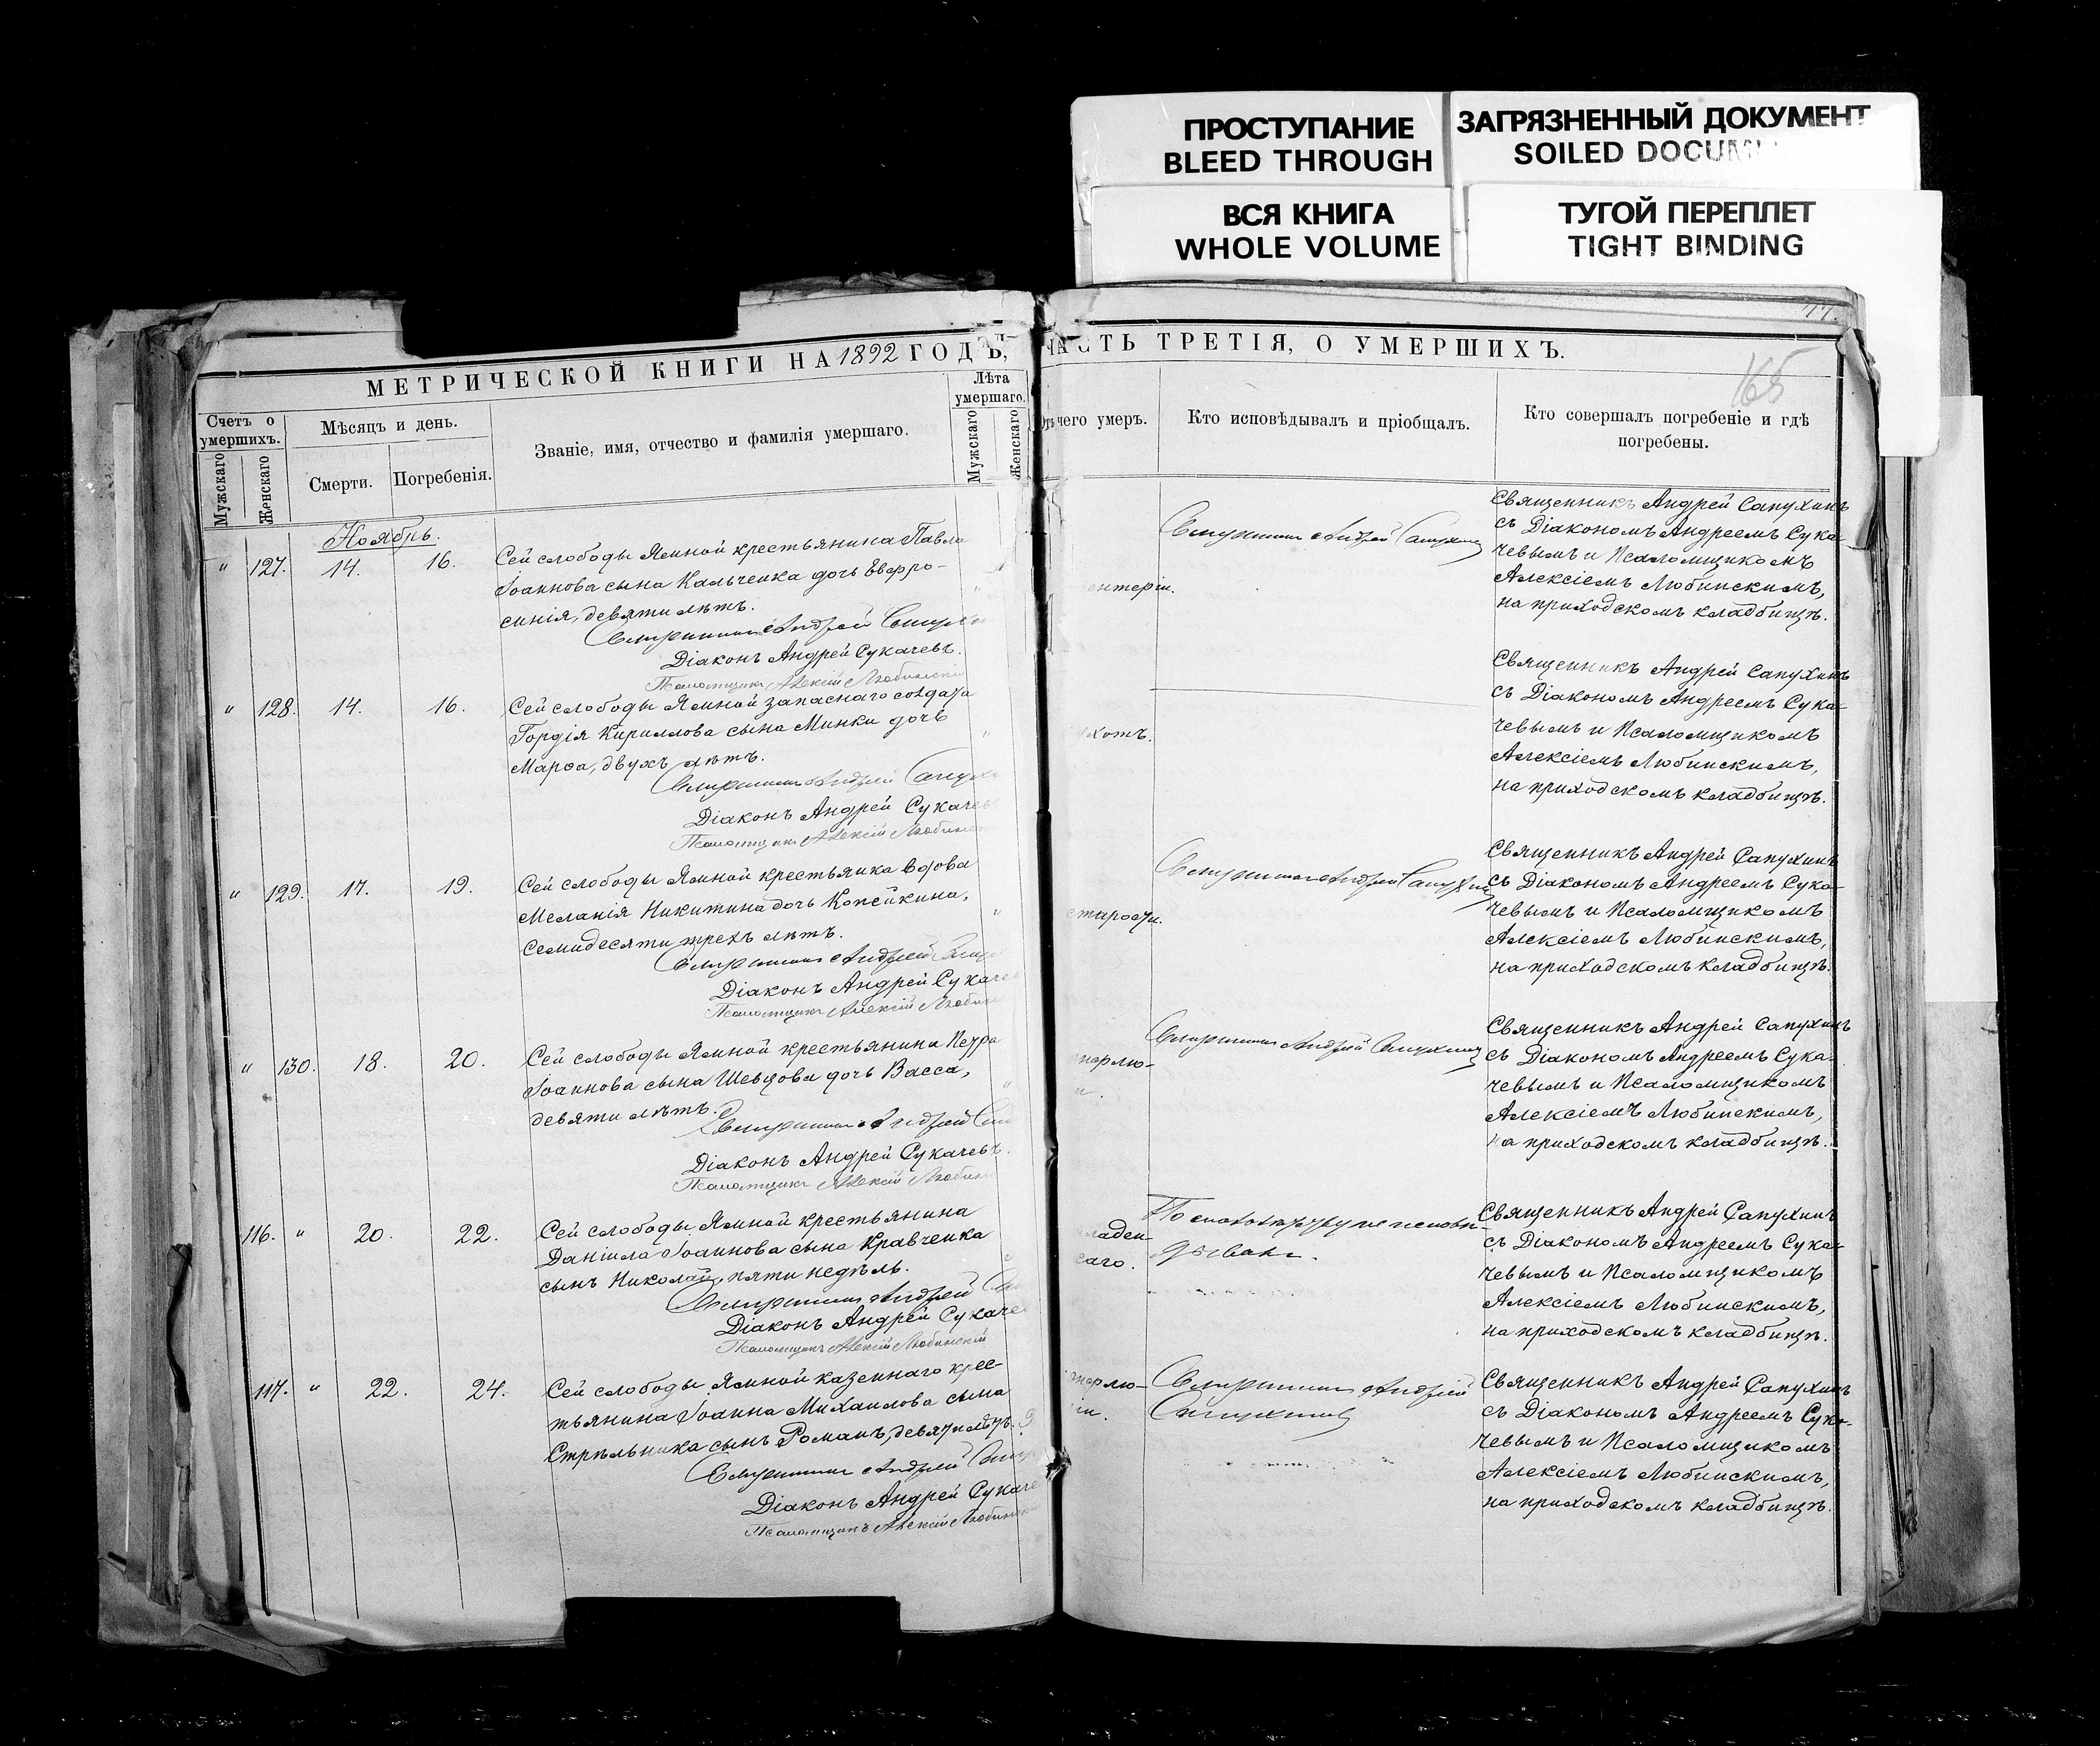 ПРОСТУПАНИЕ
BLEED THROUGH
ЗАГРЯЗНЕННЫЙ ДОКУМЕНТ
SOILED
ВСЯ КНИГА
WHOLE VOLUME
ТУГОЙ ПЕРЕПЛЕТ
TIGHT BINDING
77.
165
МЕТРИЧЕСКОЙ КНИГИ НА 1892 ГОДЪ,
ЧАСТЬ ТРЕТІЯ, О УМЕРШИХЪ.
Счетъ о умершихъ.
Мужскаго
Женскаго
Мѣсяцъ и день.
Смерти.
Погребенія.
Званіе, имя, отчество и фамилія умершаго.
Лѣта умершаго.
Мужскаго
Женскаго
чего умеръ.
Кто исповѣдывалъ и пріобщалъ.
Кто совершалъ погребеніе и гдѣ
погребены.
Ноябрь.
" 127. 14. 16.
Сей слободы Ямной крестьянина Павла
Іоаннова сына Кальченка дочь Евфро-
синія, девяти лѣтъ.
Священникъ Андрей
Діаконъ Андрей Сукачевъ.
Псаломщикъ Алексій Любинскій
ентеріи.
Священникъ Андрей Сапухинъ
Священникъ Андрей Сапухинъ
съ Діакономъ Андреемъ Сука-
чевымъ и Псаломщикомъ
Алексіемъ Любинскимъ,
на приходскомъ кладбищѣ.
" 128. 14. 16.
Сей слободы Ямной запаснаго солдата
Гордія Кириллова сына Минки дочь
Марѳа, двухъ лѣтъ.
Священникъ Андрей
Діаконъ Андрей Сукачевъ
Псаломщикъ Алексій
хотъ.
Священникъ Андрей Сапухинъ
съ Діакономъ Андреемъ Сука-
чевымъ и Псаломщикомъ
Алексіемъ Любинскимъ,
на приходскомъ кладбищѣ.
" 129. 17. 19.
Сей слободы Ямной крестьянка вдова
Меланія Никитина дочь Копейкина,
семидесяти трехъ лѣтъ.
Священникъ Андрей
Діаконъ Андрей
Псаломщикъ Алексій
старости.
Священникъ Андрей Сапухинъ
Священникъ Андрей Сапухинъ
съ Діакономъ Андреемъ Сука-
чевымъ и Псаломщикомъ
Алексіемъ Любинскимъ,
на приходскомъ кладбищѣ.
" 130. 18. 20.
Сей слободы Ямной крестьянина Петра
Іоаннова сына Шевцова дочь Васса,
девяти лѣтъ.
Священникъ Андрей
Діаконъ Андрей Сукачевъ.
Псаломщикъ Алексій
Священникъ Андрей Сапухинъ
Священникъ Андрей Сапухинъ
съ Діакономъ Андреемъ Сука-
чевымъ и Псаломщикомъ
Алексіемъ Любинскимъ,
на приходскомъ кладбищѣ.
116. " 20. 22.
Сей слободы Ямной крестьянина
Даніила Іоаннова сына Кравченка
сынъ Николай, пяти недѣль.
Священникъ Андрей
Діаконъ Андрей
Псаломщикъ Алексій Любинскій
ладен
саго.
По
Священникъ Андрей Сапухинъ
съ Діакономъ Андреемъ Сука-
чевымъ и Псаломщикомъ
Алексіемъ Любинскимъ,
на приходскомъ кладбищѣ.
117. " 22. 24.
Сей слободы Ямной казеннаго крес-
тьянина Іоанна Михаилова сына
Стрѣльника сынъ Романъ, девяти лѣтъ. 9
Священникъ Андрей
Діаконъ Андрей
Псаломщикъ Алексій
Священникъ Андрей
Сапухинъ
Священникъ Андрей Сапухинъ
съ Діакономъ Андреемъ Сука-
чевымъ и Псаломщикомъ
Алексіемъ Любинскимъ,
на приходскомъ кладбищѣ.